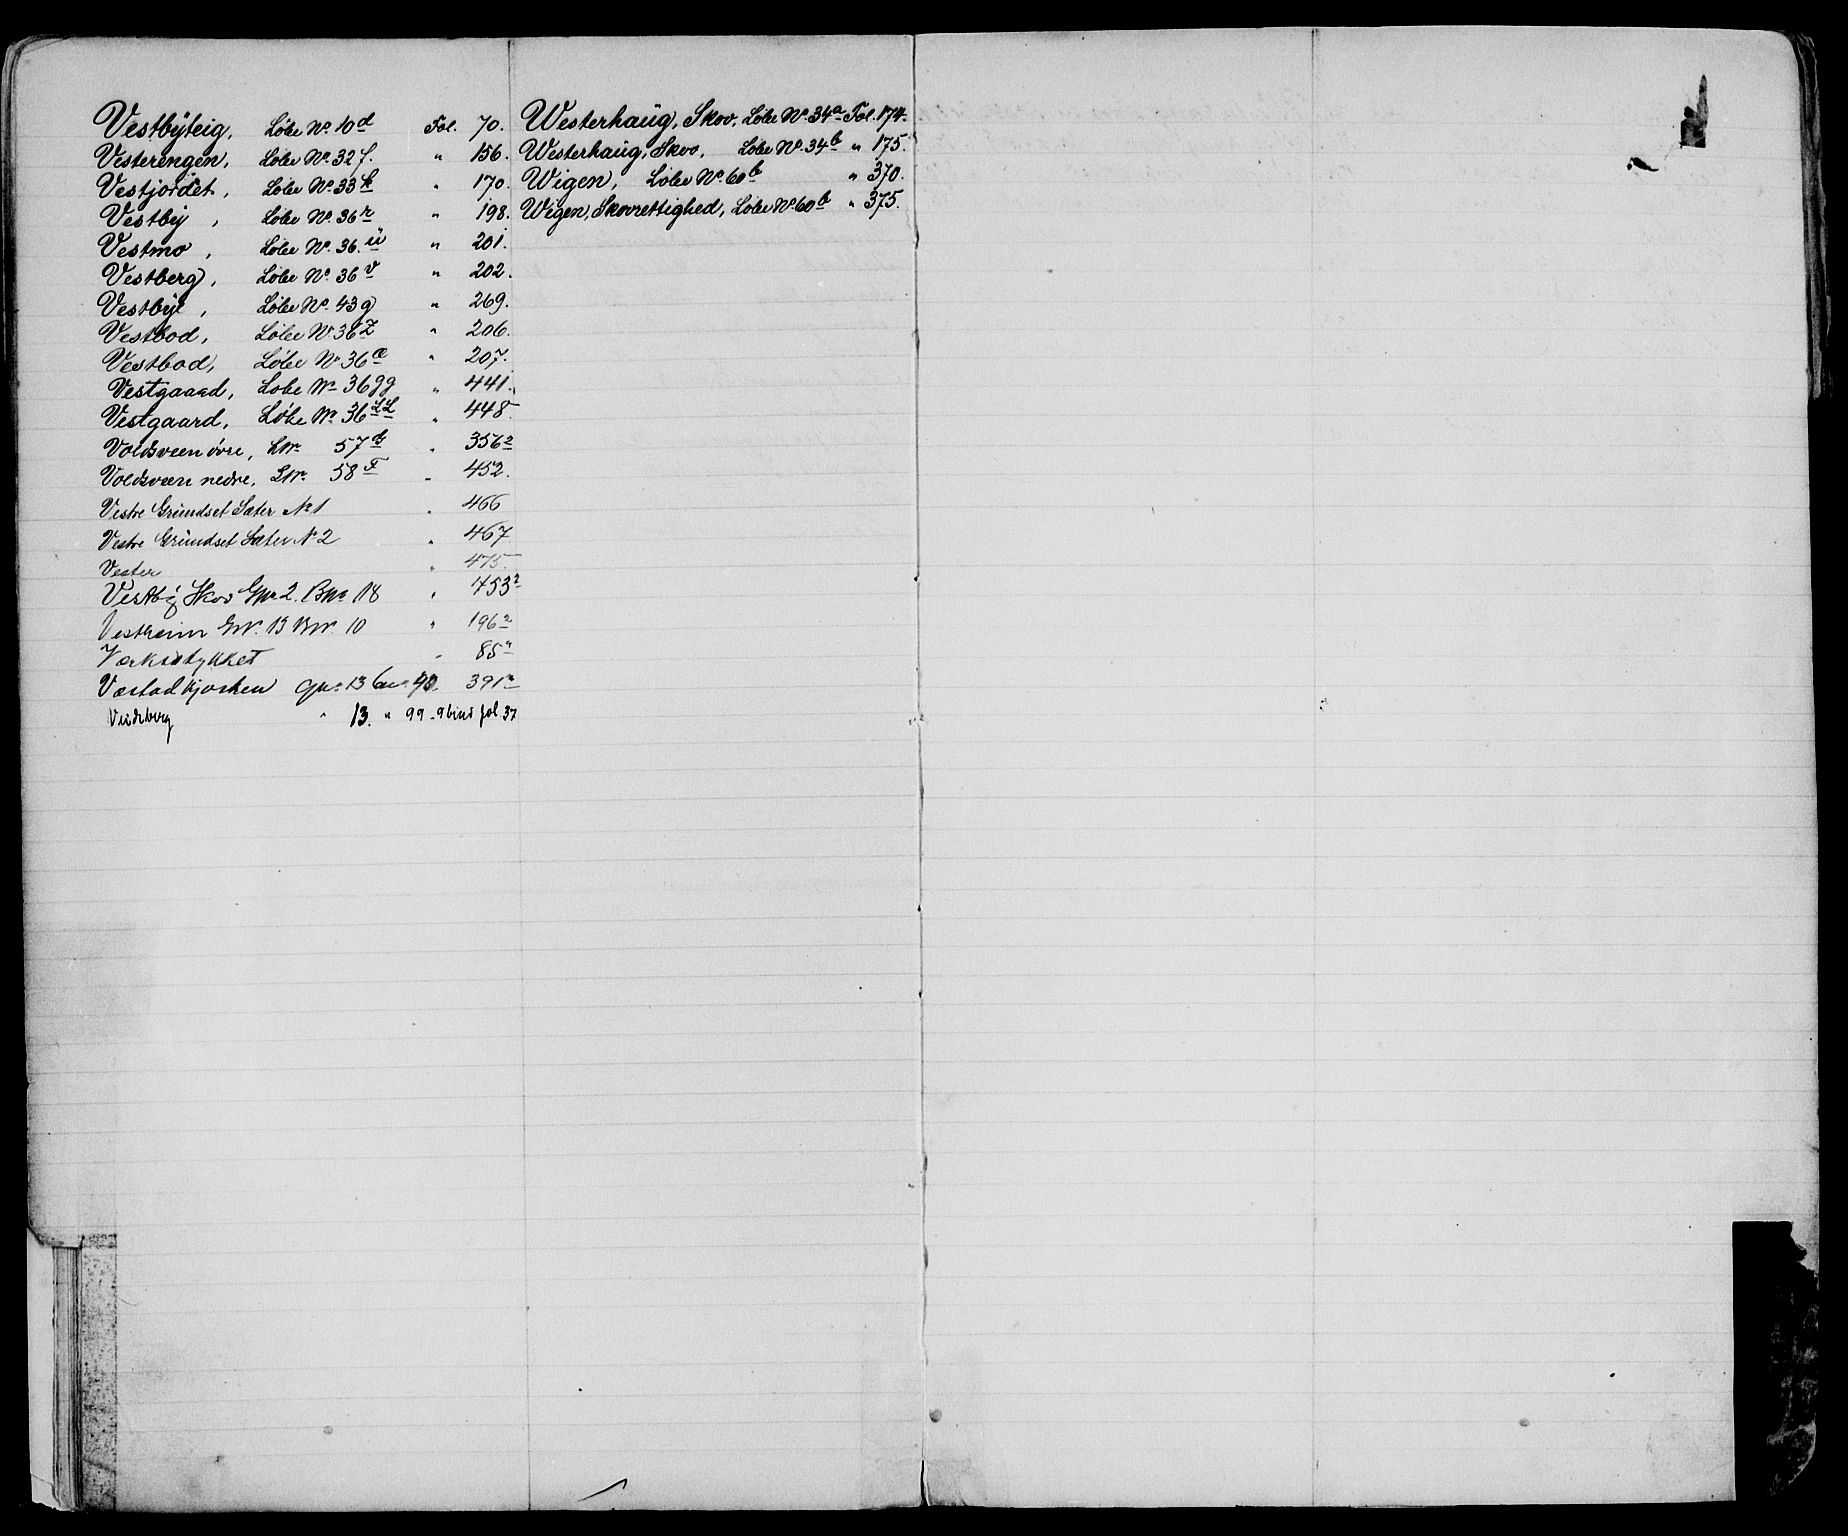 Vestbyteig, Löbe No. 10d Fol. 70.
Vesterengen, Löbe No. 32f. " 156.
Vestjordet, Löbe No. 33k " 170.
Vestby, Löbe No. 36r " 198.
Vestmo, Löbe No. 36.ü " 201.
Vestberg, Löbe No. 36v " 202.
Vestby, Löbe No. 43g " 269.
Vestbod, Löbe No 36z " 206.
Vestbod, Löbe No. 36æ " 207.
Vestgaard, Lobe No 36gg " 441.
Vestgaard, Löbe No 36LL " 448.
Voldsveen övre, LNr. 57 " 356²
Voldsveen nedre, LNr. 58F " 452.
Vestre Gründset Sæter No 1 " 466
Vestre Gründset Sæter No 2 " 467
Vester " 475.
Vestby Skov Gnr 2. Bnr 18 " 453²
Vestheim GNr. 13 BNr. 10 " 196²
Værksstykket " 85
Væstad kjosken gnr 13 bnr 90. 391
Vindsberg " 13. " 99 - 9 bind fol. 37
Westerhaüg, Skov, Löbe No. 34a Fol. 174.
Westerhaug, Skov, Löbe No. 34b " 175.
Wigen, Löbe No. 60b " 370.
Wigen, Skovrettighed, Löbe No 60b " 375.